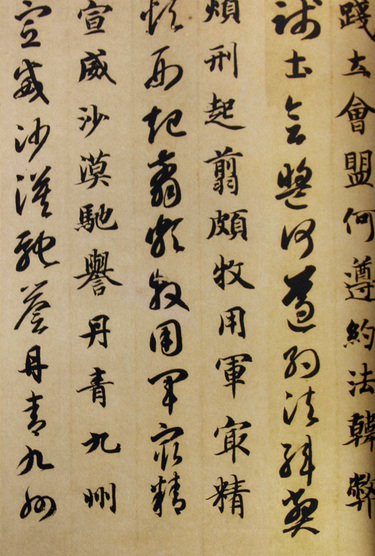 踐土會盟何遵約法韓弊
踐土會盟何遵約法韓弊
煩刑起翦頗牧用軍最精
煩刑起翦頗牧用軍最精
宣威沙漠馳譽丹青九州
宣威沙漠馳譽丹青九州